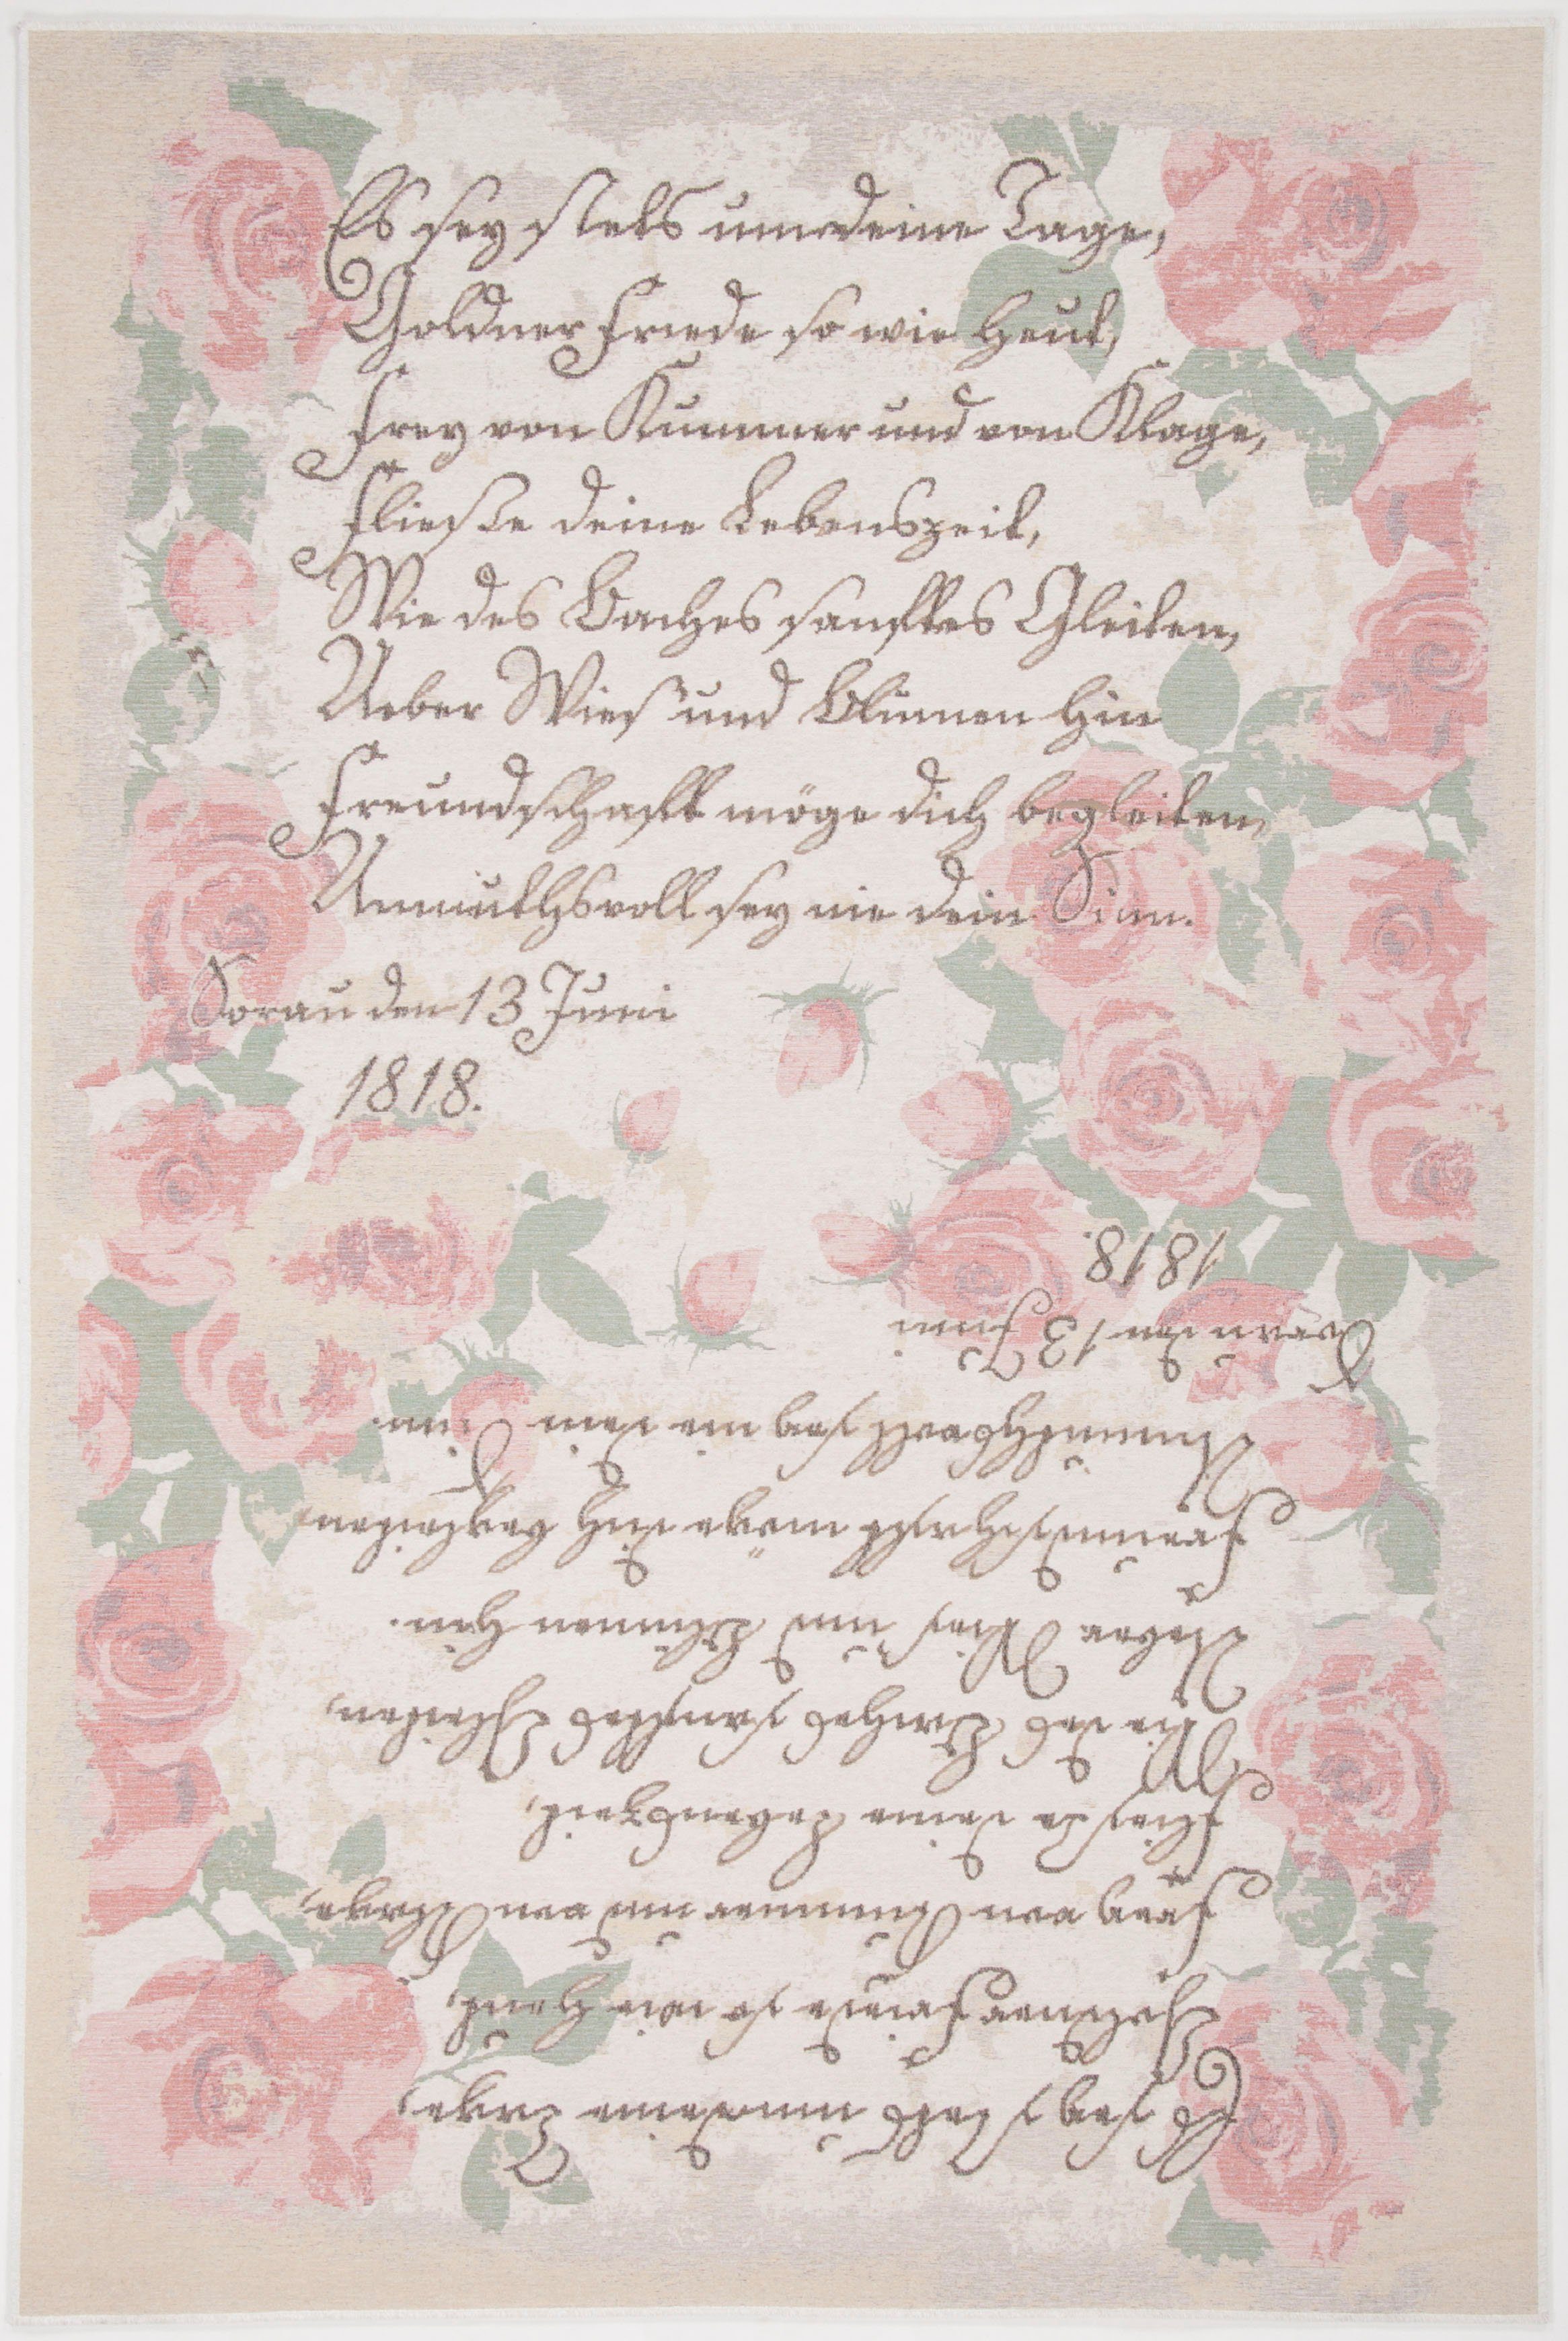 Es sey stets um deine Tage,
Goldner Friede so wie heut,
Frey von Kummer und von Klage,
Fließe deine Lebenszeit,
Wie des Baches sanftes Gleiten,
Ueber Wies' und Blumen hin
Freundschaft möge dich begleiten,
Unmuthsvoll sey nie dein Sinn.
Sorau den 13 Juni
1818.
Es sey stets um deine Tage,
Goldner Friede so wie heut,
Frey von Kummer und von Klage,
Fließe deine Lebenszeit,
Wie des Baches sanftes Gleiten,
Ueber Wies' und Blumen hin.
Freundschaft möge dich begleiten,
Unmuthsvoll sey nie dein Sinn.
Sorau den 13 Juni
1818.